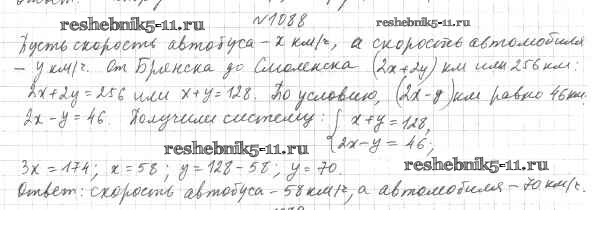 №1088
reshebnik5-11.ru reshebnik5-11.ru
Пусть скорость автобуса – x км/ч, а скорость автомобиля
– y км/ч. От Брянска до Смоленска (2x+2y) км или 256 км:
2x+2y=256 или x+y=128. По условию, (2x-y) км равно 46 км.
2x-y=46. Получили систему: { x+y=128,
2x-y=46;
reshebnik5-11.ru reshebnik5-11.ru
3x=174; x=58; y=128-58; y=70.
Ответ: скорость автобуса – 58 км/ч, а автомобиля – 70 км/ч.